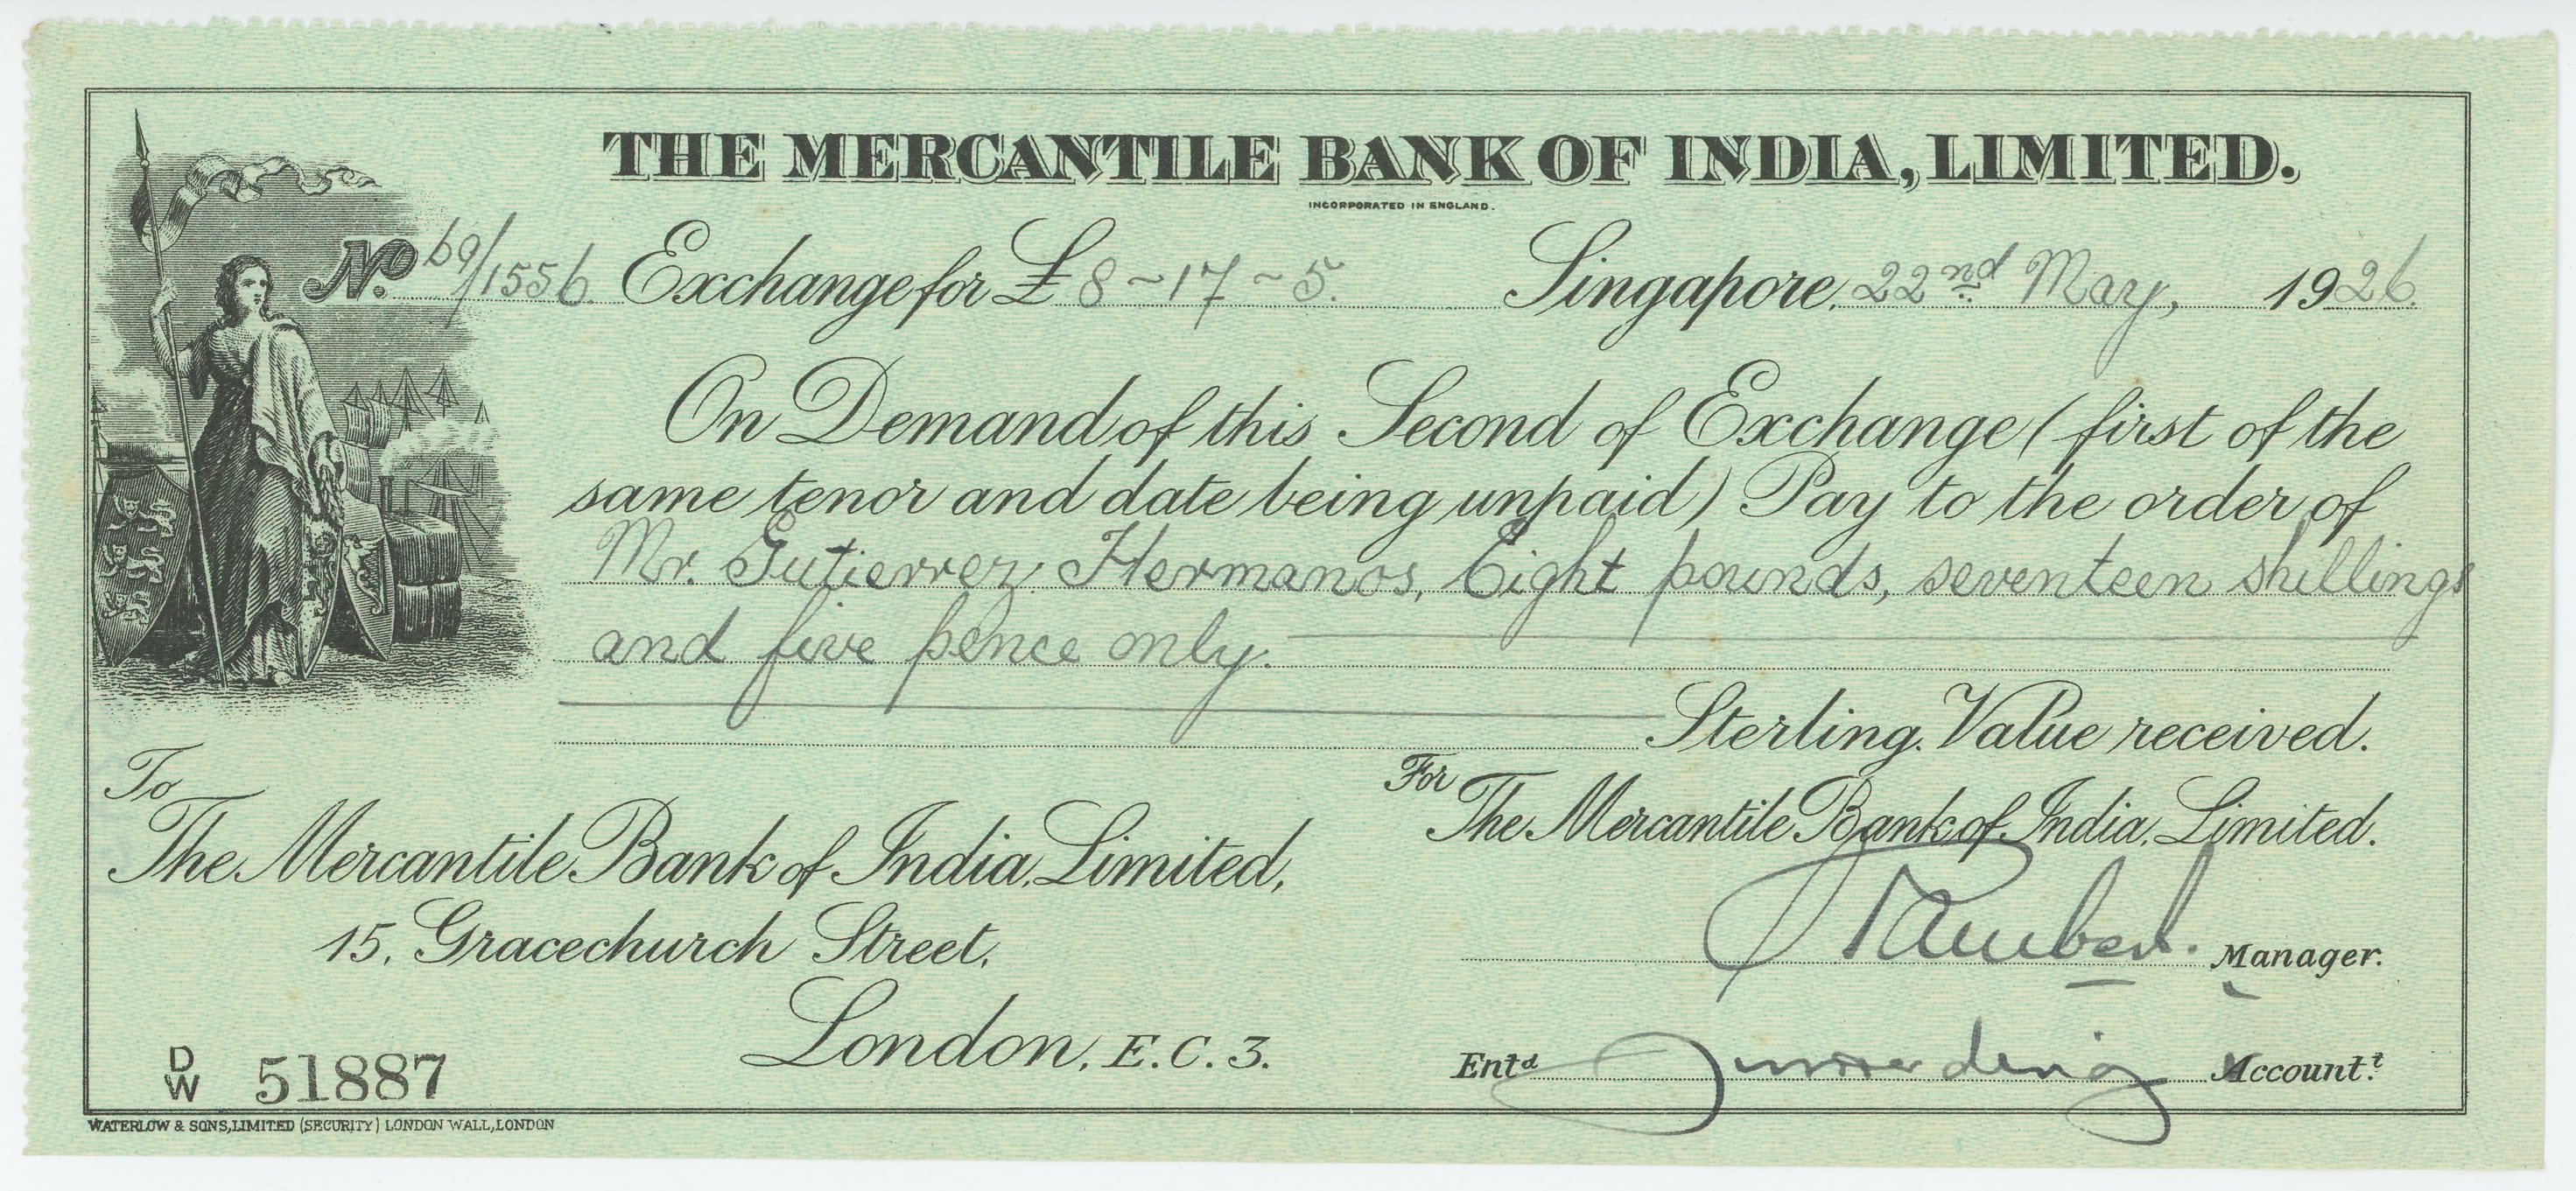 THE MERCANTILE BANK OF INDIA, LIMITED.
INCORPORATED IN ENGLAND.
No. 69/1556. Exchange for £ 8~17~5. Singapore, 22nd May, 1926.
On Demand of this Second of Exchange (first of the
same tenor and date being unpaid) Pay to the order of
Mr. Gutierrez Hermanos, Eight pounds, seventeen shillings
and five pence only.
Sterling. Value received.
To
The Mercantile Bank of India, Limited,
15, Gracechurch Street,
London, E.C. 3.
For
The Mercantile Bank of India, Limited.
Manager.
Entd Accountt.
D/W 51887
WATERLOW & SONS, LIMITED (SECURITY) LONDON WALL, LONDON